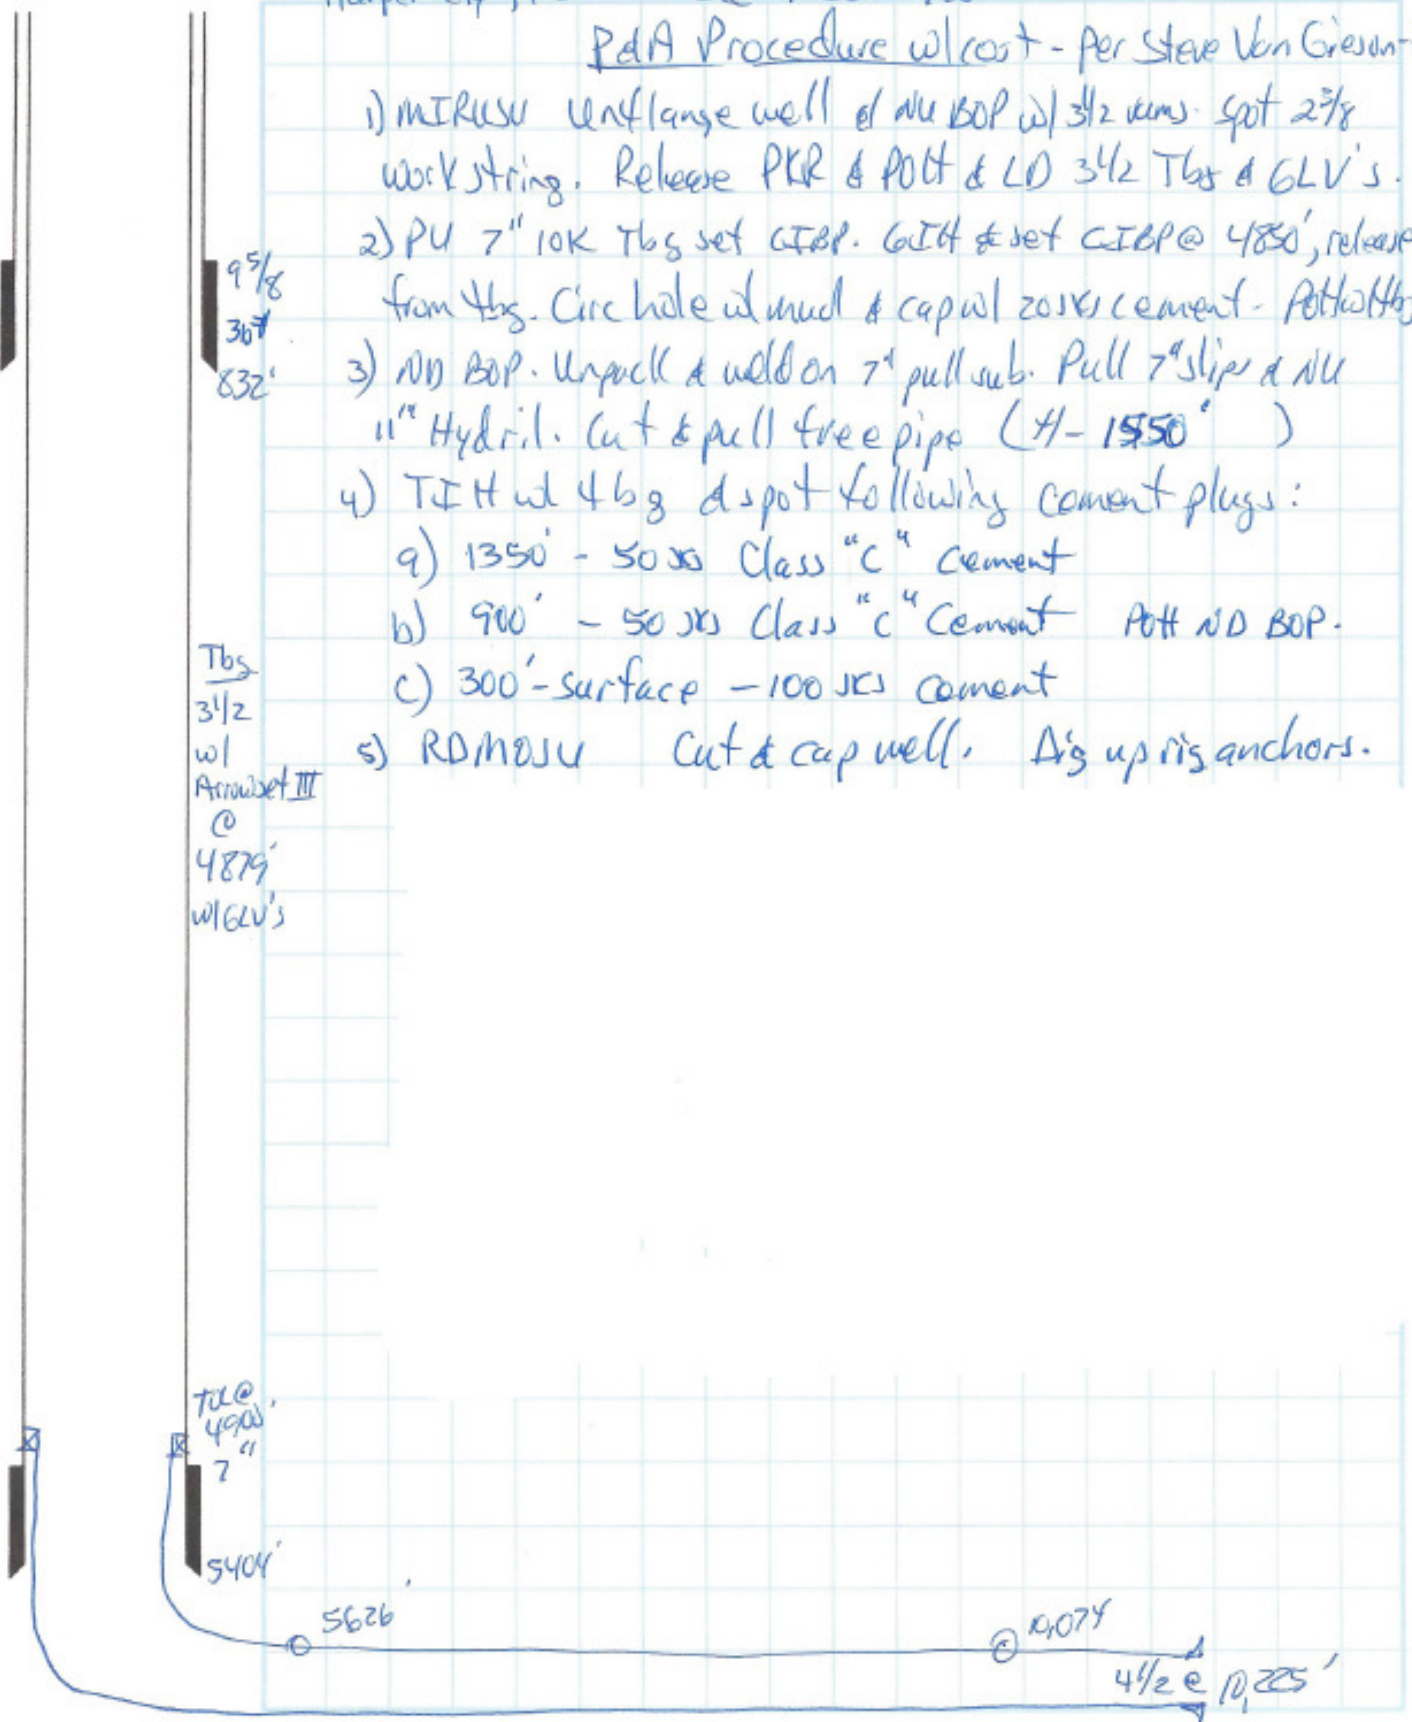 P&A Procedure w/ cost - Per Steve Van Gieson-
1) MIRUSU Unflange well & NU BOP w/ 3 1/2 rams. Spot 2 3/8
work string. Release PKR & POH & LD 3 1/2 Tbg & GLV's.
2) PU 7" 10K Tbg set CIBP. GIH & set CIBP@ 4850', release
from tbg. Circ hole w/ mud & cap w/ 20 sks cement - POH w/ tbg
3) ND BOP. Unpack & weld on 7" pull sub. Pull 7" slips & NU
11" Hydril. Cut & pull free pipe (+/- 1550' )
4) TIH w/ tbg & spot following cement plugs:
a) 1350' - 50 sks Class "C" Cement
b) 900' - 50 sks Class "C" Cement POH ND BOP.
c) 300'-surface - 100 sks cement
5) RDMOSU Cut & cap well. Dig up rig anchors.
9 5/8
36#
832'
Tbg
3 1/2
w/
Arrowset III
@
4879'
w/GLV's
TOL@
4900'
7"
5404'
5626'
10,074
4 1/2 @ 10,225'